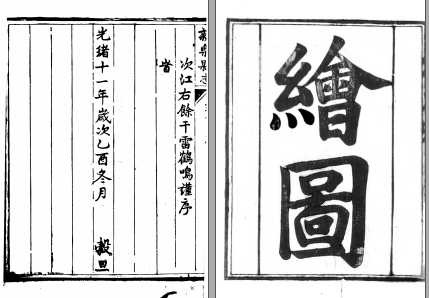 次江右餘干雷鶴鳴謹序
旹
光緒十一年歲次乙酉冬月 穀旦
繪圖